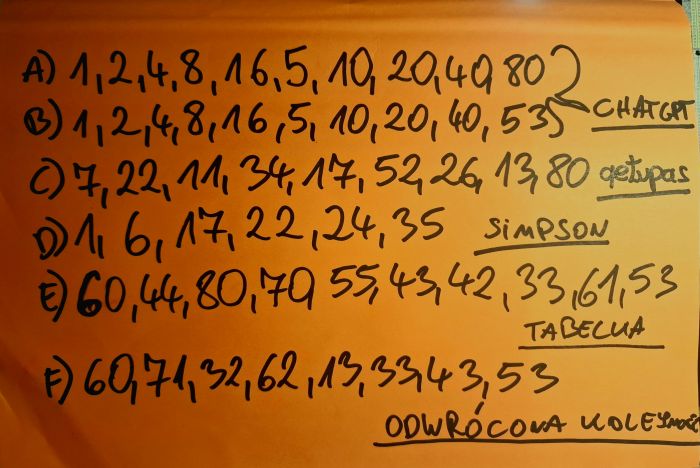 A) 1, 2, 4, 8, 16, 5, 10, 20, 40, 80
B) 1, 2, 4, 8, 16, 5, 10, 20, 40, 53
CHATGPT
C) 7, 22, 11, 34, 17, 52, 26, 13, 80 qetupas
D) 1, 6, 17, 22, 24, 35 SIMPSON
E) 60, 44, 80, 70, 55, 43, 42, 33, 61, 53
TABELKA
F) 60, 71, 32, 62, 13, 33, 43, 53
ODWRÓCONA KOLEJNOŚĆ